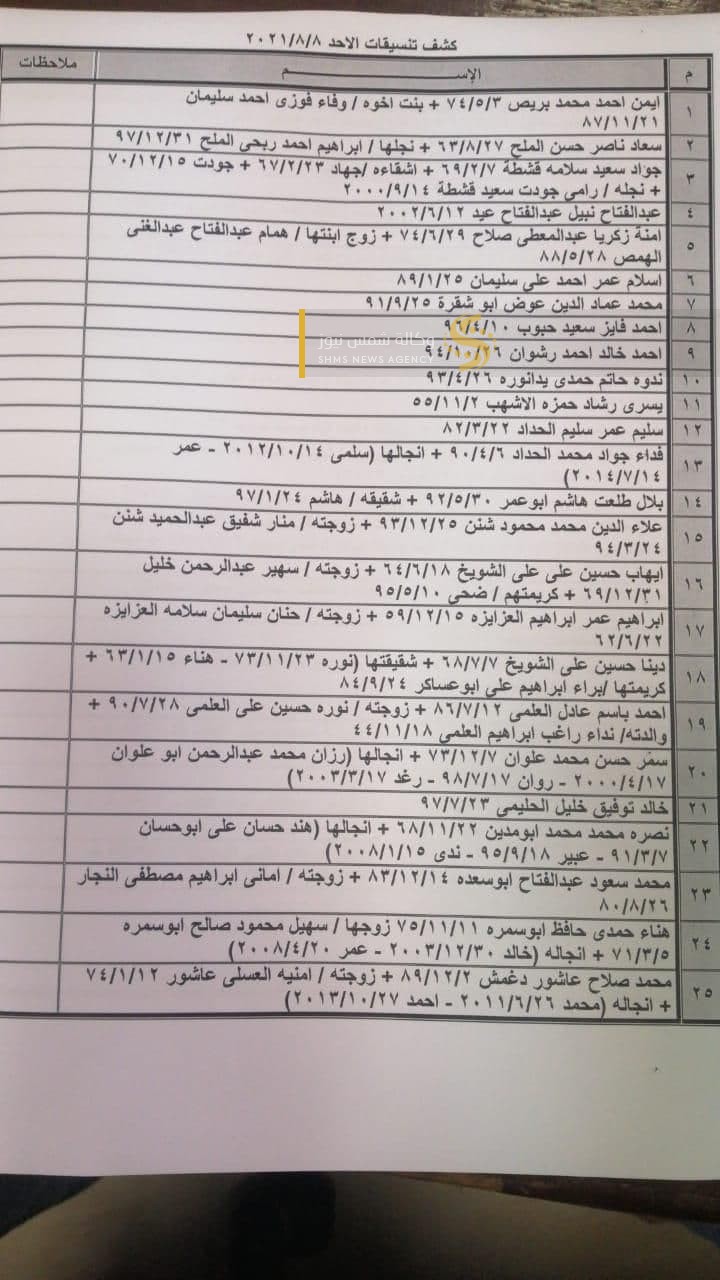 كشف تنسيقات الاحد ٢٠٢١/٨/٨
م الإســـــــــم ملاحظات
١ ايمن احمد محمد بريص ٧٤/٥/٣ + بنت اخوه / وفاء فوزى احمد سليمان
٨٧/١١/٢١
٢ سعاد ناصر حسن الملح ٦٣/٨/٢٧ + نجلها / ابراهيم احمد ربحى الملح ٩٧/١٢/٣١
٣ جواد سعيد سلامه قشطة ٦٩/٢/٧ + اشقاءه /جهاد ٦٧/٢/٢٣ + جودت ٧٠/١٢/١٥
+ نجله / رامى جودت سعيد قشطة ٢٠٠٠/٩/١٤
٤ عبدالفتاح نبيل عبدالفتاح عيد ٢٠٠٢/٦/١٢
٥ امنة زكريا عبدالمعطى صلاح ٧٤/٦/٢٩ + زوج ابنتها / همام عبدالفتاح عبدالغنى
الهمص ٨٨/٥/٢٨
٦ اسلام عمر احمد على سليمان ٨٩/١/٢٥
٧ محمد عماد الدين عوض ابو شقرة ٩١/٩/٢٥
٨ احمد فايز سعيد حبوب ٩٦/٤/١٠
٩ احمد خالد احمد رشوان ٩٤/١٠/٢٦
وكالة شمس نيوز
SHMS NEWS AGENCY
١٠ ندوه حاتم حمدى يدانوره ٩٣/٤/٢٦
١١ يسرى رشاد حمزه الاشهب ٥٥/١١/٢
١٢ سليم عمر سليم الحداد ٨٢/٣/٢٢
١٣ فداء جواد محمد الحداد ٩٠/٤/٦ + انجالها (سلمى ٢٠١٢/١٠/١٤ - عمر
٢٠١٤/٧/١٤)
١٤ بلال طلعت هاشم ابوعمر ٩٢/٥/٣٠ + شقيقه / هاشم ٩٧/١/٢٤
١٥ علاء الدين محمد محمود شنن ٩٣/١٢/٢٥ + زوجته / منار شفيق عبدالحميد شنن
٩٤/٣/٢٤
١٦ ايهاب حسين على على الشويخ ٦٤/٦/١٨ + زوجته / سهير عبدالرحمن خليل
٦٩/١٢/٣١ + كريمتهم / ضحى ٩٥/٥/١٠
١٧ ابراهيم عمر ابراهيم العزايزه ٥٩/١٢/١٥ + زوجته / حنان سليمان سلامه العزايزه
٦٢/٦/٢٢
١٨ دينا حسين على الشويخ ٦٨/٧/٧ + شقيقتها (نوره ٧٣/١١/٢٣ - هناء ٦٣/١/١٥ +
كريمتها /براء ابراهيم على ابوعساكر ٨٤/٩/٢٤
١٩ احمد باسم عادل العلمى ٨٦/٧/١٢ + زوجته / نوره حسين على العلمى ٩٠/٧/٢٨ +
والدته/ نداء راغب ابراهيم العلمى ٤٤/١١/١٨
٢٠ سمر حسن محمد علوان ٧٣/١٢/٧ + انجالها (رزان محمد عبدالرحمن ابو علوان
٢٠٠٠/٤/١٧ - روان ٩٨/٧/١٧ - رغد ٢٠٠٣/٣/١٧)
٢١ خالد توفيق خليل الحليمى ٩٧/٧/٢٣
٢٢ نصره محمد محمد ابومدين ٦٨/١١/٢٢ + انجالها (هند حسان على ابوحسان
٩١/٣/٧ - عبير ٩٥/٩/١٨ - ندى ٢٠٠٨/١/١٥)
٢٣ محمد سعود عبدالفتاح ابوسعده ٨٣/١٢/١٤ + زوجته / امانى ابراهيم مصطفى النجار
٨٠/٨/٢٦
٢٤ هناء حمدى حافظ ابوسمره ٧٥/١١/١١ زوجها / سهيل محمود صالح ابوسمره
٧١/٣/٥ + انجاله (خالد ٢٠٠٣/١٢/٣٠ - عمر ٢٠٠٨/٤/٢٠)
٢٥ محمد صلاح عاشور دغمش ٨٩/١٢/٢ + زوجته / امنيه العسلى عاشور ٧٤/١/١٢
+ انجاله (محمد ٢٠١١/٦/٢٦ - احمد ٢٠١٣/١٠/٢٧)